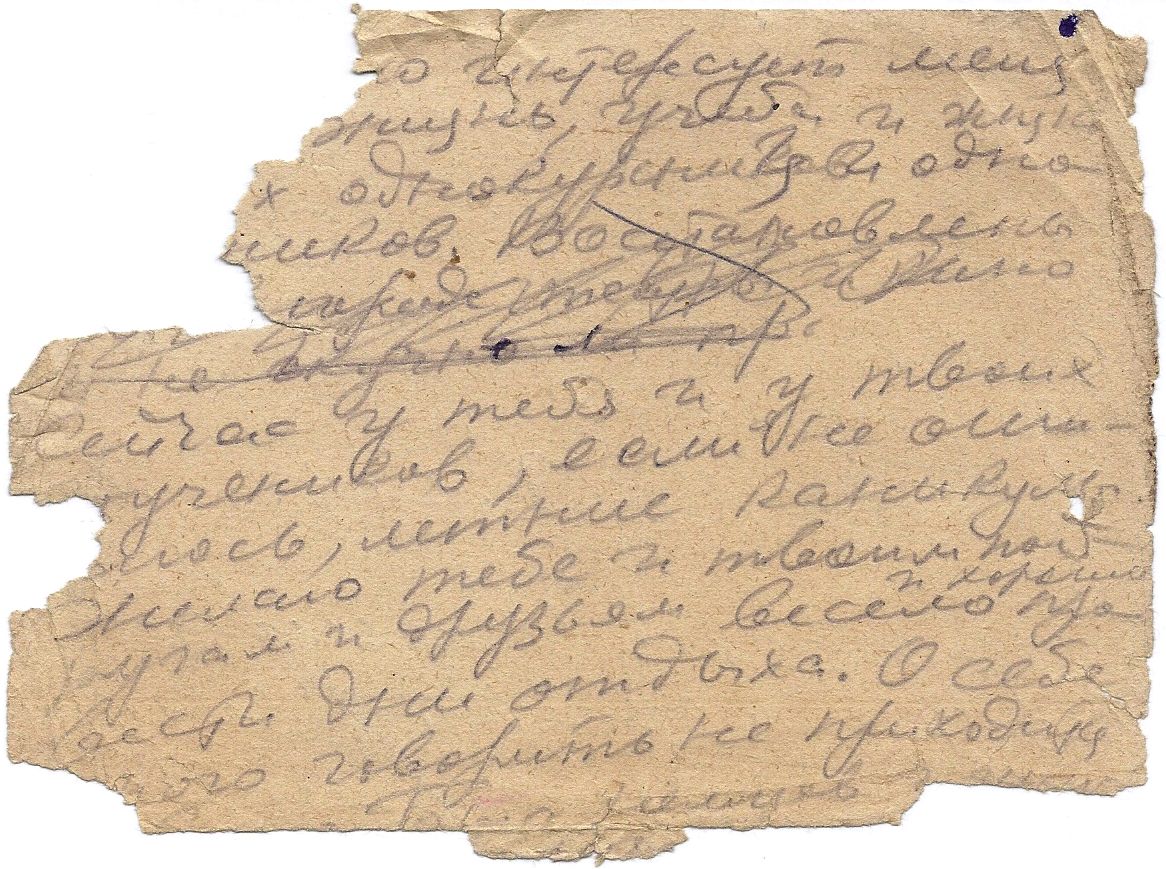 но интересует меня
жизнь, учеба и жизн
х однокурсников, одно-
ников. Восстановлены
города театры и кино
и не
Сейчас у тебя и у твоих
учеников, если не оши-
лось, летние каникулы.
Желаю тебе и твоим под-
ругам и друзьям весело и хорошо про-
вести дни отдыха. О себе
много говорить не приходится